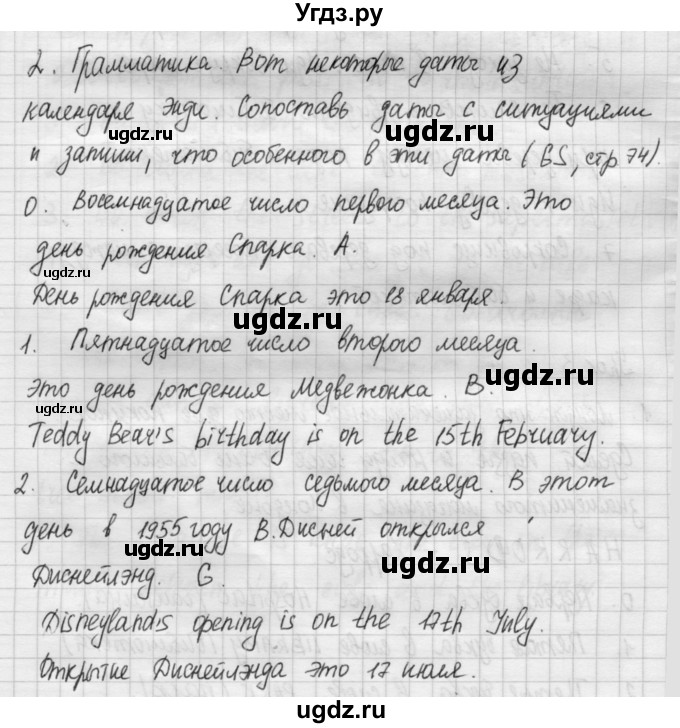 Угдз.ру
2. Грамматика. Вот некоторые даты из
календаря Энди. Сопоставь даты с ситуациями
и запиши, что особенного в эти даты (GS, стр. 74).
0. Восемнадцатое число первого месяца. Это
день рождения Спарка. А.
День рождения Спарка это 18 января.
1. Пятнадцатое число второго месяца.
Это день рождения Медвежонка. В.
Teddy Bear's birthday is on the 15th February.
2. Семнадцатое число седьмого месяца. В этот
день в 1955 году В. Дисней открылся
Диснейлэнд. G.
Disneyland's opening is on the 17th July.
Открытие Диснейлэнда это 17 июля.
ugdz.ru
ugdz.ru
ugdz.ru
ugdz.ru
ugdz.ru
ugdz.ru
ugdz.ru
ugdz.ru
ugdz.ru
ugdz.ru
ugdz.ru
ugdz.ru